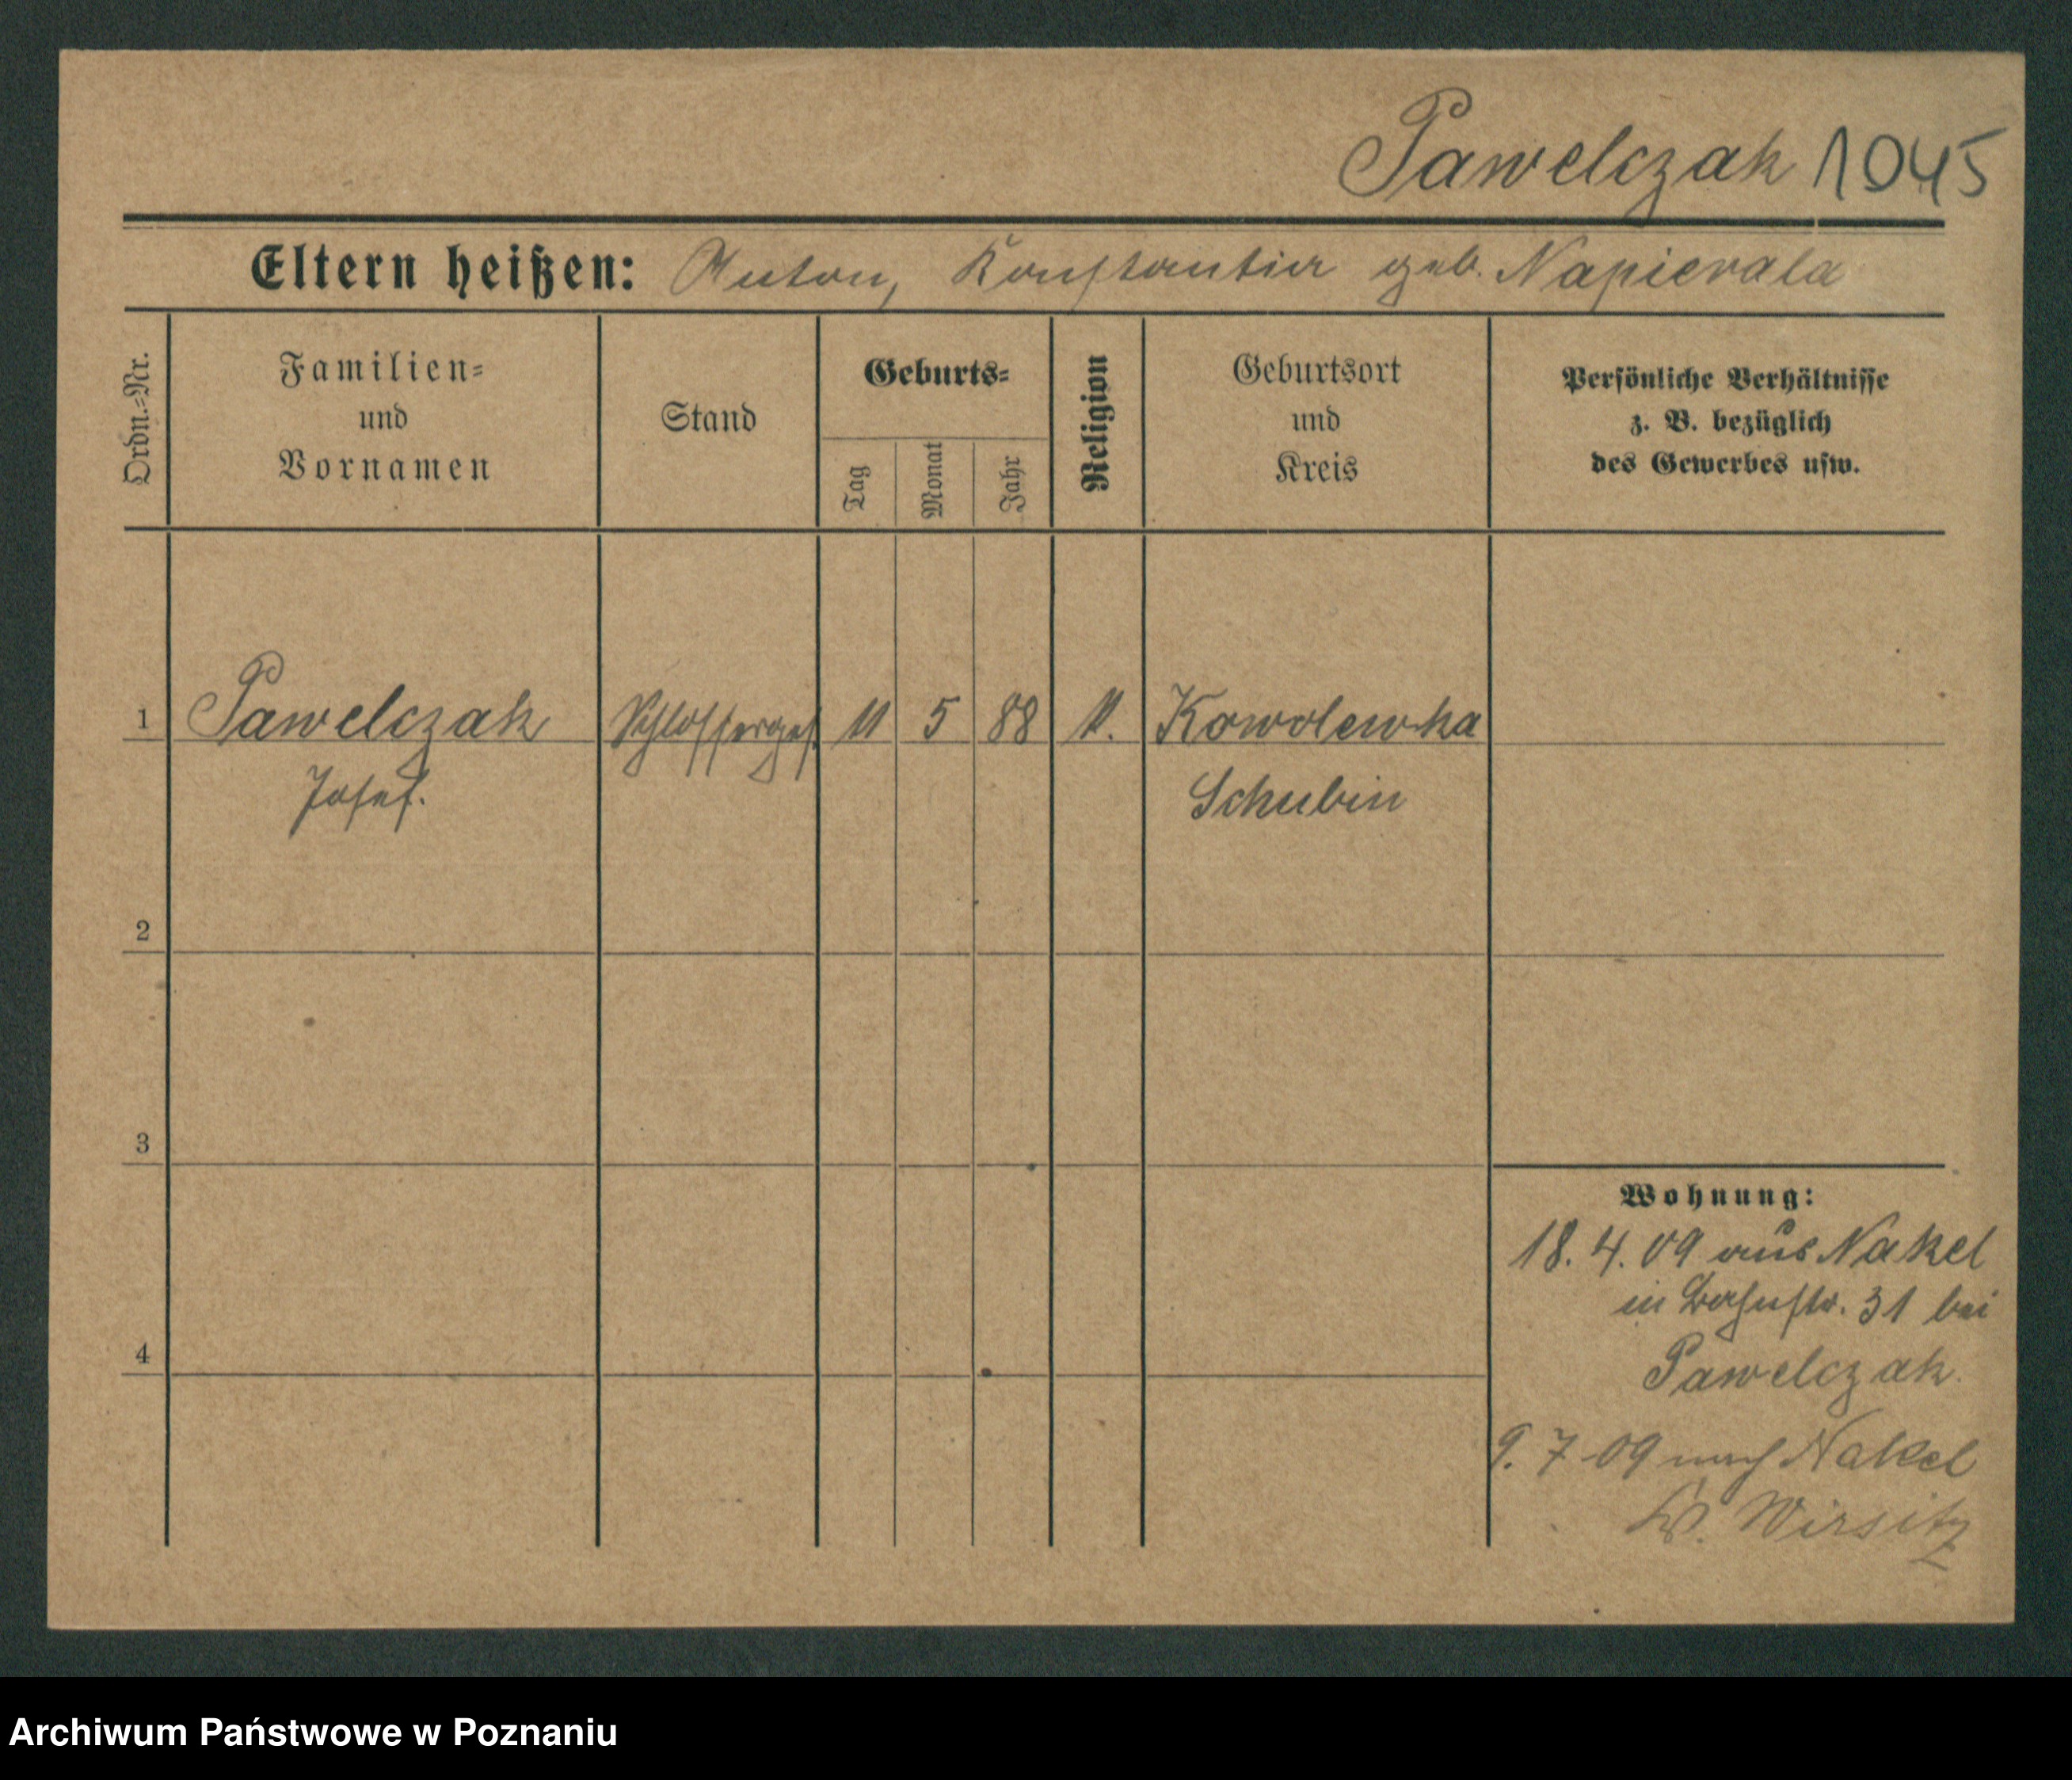 Pawelczak 1045
Eltern heißen: Anton, Konstantia geb. Napierala
Ordn.-Nr.
Familien-
und
Vornamen
Stand
Geburts-
Tag
Monat
Jahr
Religion
Geburtsort
und
Kreis
Persönliche Verhältnisse
z. B. bezüglich
des Gewerbes usw.
1 Pawelczak Schlosserges. 11 5 88 k. Kowolewka
Josef. Schubin
2
3
4
Wohnung:
18. 4. 09 aus Nakel
in Bahnstr. 31 bei
Pawelczak.
9. 7 09 nach Nakel
Wirsitz
Archiwum Państwowe w Poznaniu